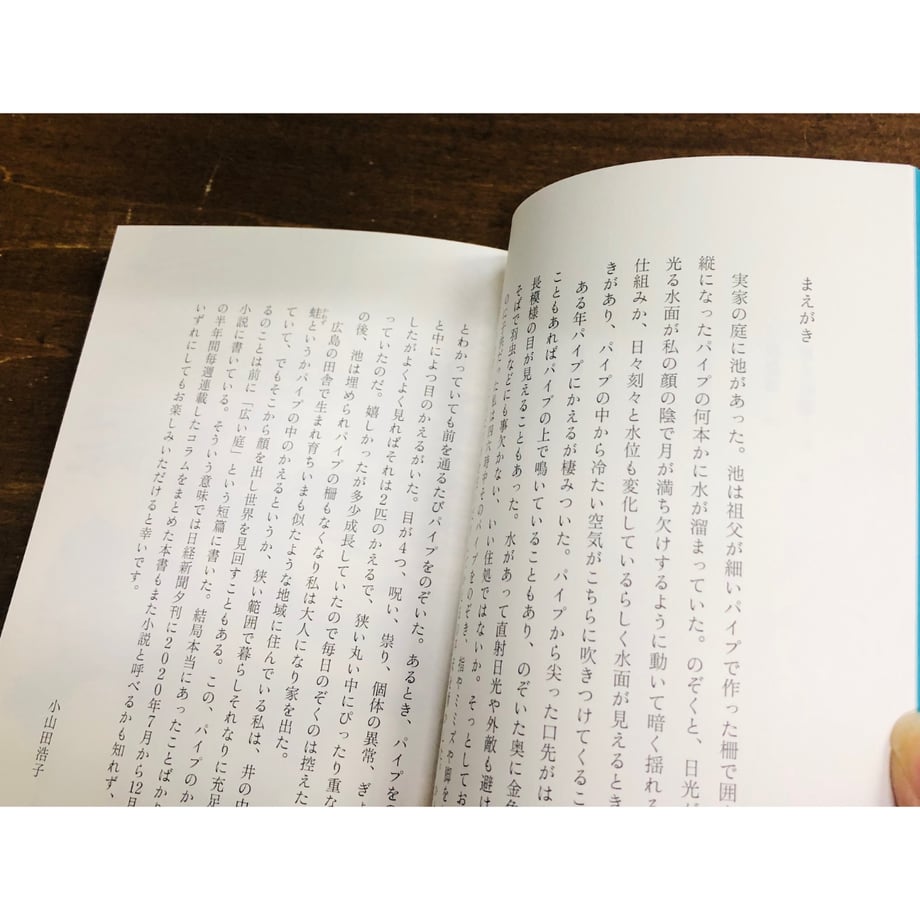 まえがき
実家の庭に池があった。池は祖父が細いパイプで作った柵で囲
縦になったパイプの何本かに水が溜まっていた。のぞくと、日光が
光る水面が私の顔の陰で月が満ち欠けするように動いて暗く揺れる
仕組みか、日々刻々と水位も変化しているらしく水面が見えるとき
きがあり、パイプの中から冷たい空気がこちらに吹きつけてくるこ
ある年パイプにかえるが棲みついた。パイプから尖った口先が
こともあればパイプの上で鳴いていることもあり、のぞいた奥に金色
長模様の目が見えることもあった。水があって直射日光や外敵も避け
そばで羽虫などにも事欠かない、いい住処ではないか。そっとしてお
私は四六時中そのパイプをのぞき、指やミミズや脚を
とわかっていても前を通るたびパイプをのぞいた。あるとき、パイプを
と中によっ目のかえるがいた。目が4つ、呪い、祟り、個体の異常、ぎょ
したがよくよく見ればそれは2匹のかえるで、狭い丸い中にぴったり重な
っていたのだ。嬉しかったが多少成長していたので毎日のぞくのは控えた
の後、池は埋められパイプの柵もなくなり私は大人になり家を出た。
広島の田舎で生まれ育ちいまも似たような地域に住んでいる私は、井の中
蛙というかパイプの中のかえるというか、狭い範囲で暮らしそれなりに充足
ていて、でもそこから顔を出し世界を見回すこともある。この、パイプのか
るのことは前に「広い庭」という短篇に書いた。結局本当にあったことばか
小説に書いている。そういう意味では日経新聞夕刊に2020年7月から12月
の半年間毎週連載したコラムをまとめた本書もまた小説と呼べるかも知れず、
いずれにしてもお楽しみいただけると幸いです。
小山田浩子